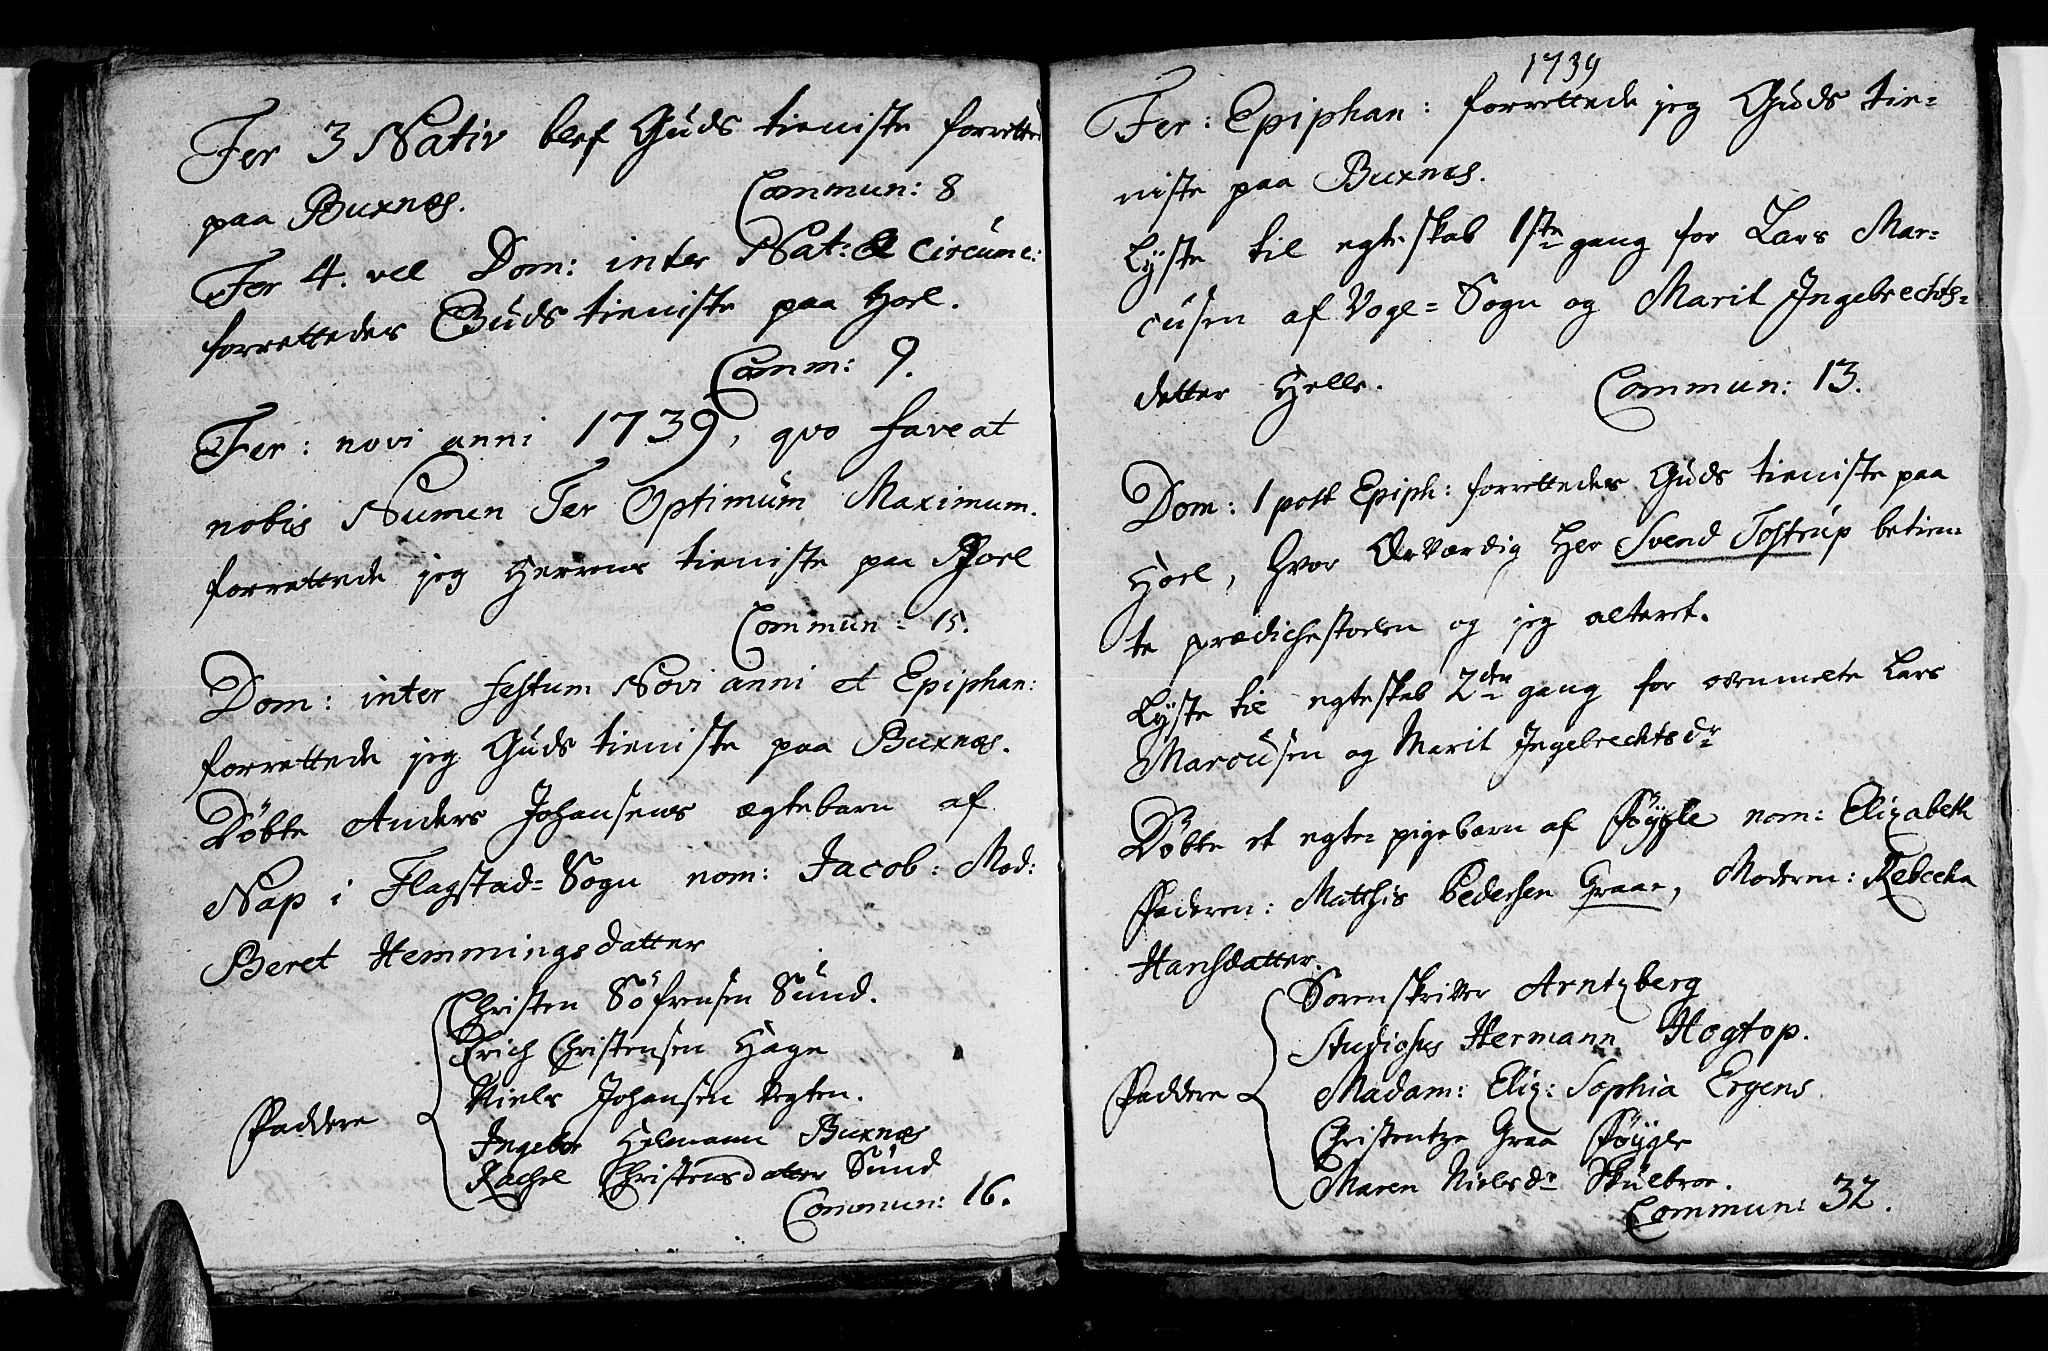 Fer 3 Nativ blef Guds tieniste forretted
paa Buxnæs. Commun: 8
Fer 4. vel Dom: inter Nat: & Circumc:
forrettedes Guds tieniste paa Hoel.
Comm: 9.
Fer: novi anni 1739, qvo faveat
nobis Numen Ter Optimum Maximum.
forrettede jeg Herrens tieniste paa Hoel
Commun: 15.
Dom: inter festum Novi anni et Epiphan:
forrettede jeg Guds tieniste paa Buxnæs.
Döbte Anders Johansens ægtebarn af
Nap i Flagstad=Sogn nom: Jacob: Mod:
Beret Hemmingsdatter
Christen Söfrensen Sund.
Erich Christensen Hage
Niels Johansen Vegten.
Faddere
Ingebor Helmann Buxnæs
Rachel Christensdatter Sund
Commun: 16.
1739
Fer: Epiphan: forrettede jeg Guds tie=
niste paa Buxnæs.
Lyste til egteskab 1ste gang for Lars Mar=
cusen af Voge=Sogn og Marit Ingebrechts=
datter Helle. Commun: 13.
Dom: 1 post Epiph: forrettedes Guds tieniste paa
Hoel, hvor Ærværdig Her Svend Tostrup betien=
te prædichestoelen og jeg alteret.
Lyste til egteskab 2den gang for ovenmelte Lars
Marcusen og Marit Ingebrechtsdr
Döbte et egte pigebarn af Föygle nom: Elizabeth
Faderen: Matthis Pedersen Graae, Moderen: Rebecka
Hansdatter.
Sorenskriver Arntzberg
Studiosus Hermann Hogtop.
Faddere
Madam: Eliz: Sophia Ergens
Christentze Graa Föygle
Maren Nielsdr Skulbroe.
Commun: 32.